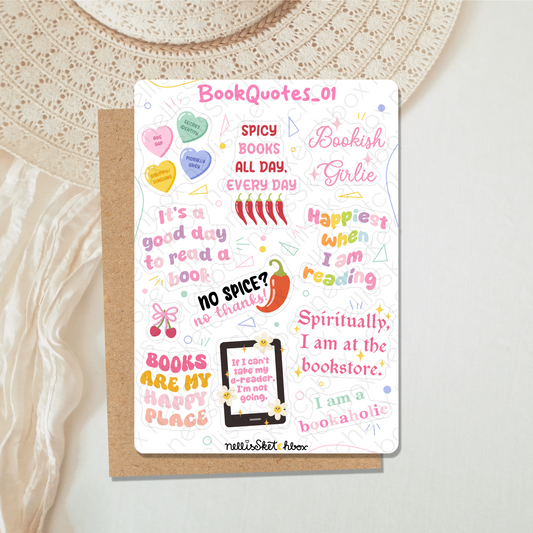 BookQuotes_01
AGE
GAP
SECRET
IDENTITY
MORALLY
GREY
SPICY
BOOKS
ALL DAY,
EVERY DAY
Bookish
Girlie
It's a
good day
to read a
book
Happiest
when
I am
reading
NO SPICE?
no thanks!
Spiritually,
I am at the
bookstore.
BOOKS
ARE MY
HAPPY
PLACE
If I can't
take my
e-reader,
I'm not
going.
I am a
bookaholic
nellisSketchbox